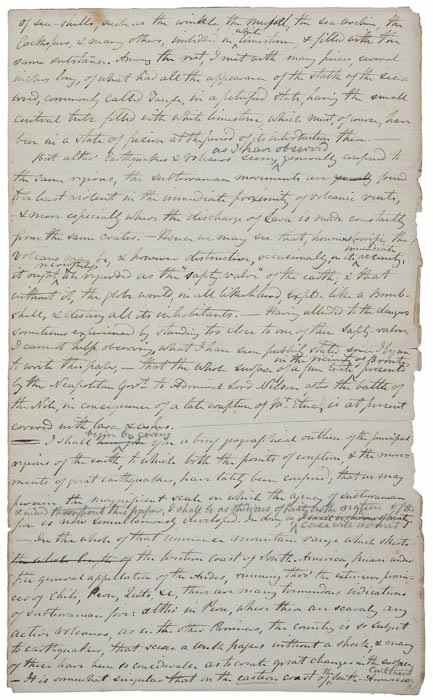 of sea-shells, such as the winkle, the mussel, the sea urchin, the
& many others, imbedded in white limestone, & filled with the
same substance. Among the rest, I met with many pieces several
inches long, of what has all the appearance of the stalk of the sea
weed, commonly called Tangle, in a petrified state, having the small
central tube filled with white limestone, which must, of course, have
been in a state of fusion at the period of its introduction there.
as I have observed
But altho' Earthquakes & Volcanos seem, generally, confined to
the same regions, the subterranean movements are found
the least violent in the immediate proximity of volcanic vents,
& more especially where the discharge of Lava is made constantly
from the same crater. — Hence we may see that, however
volcano & however destructive, occasionally, in its immediate vicinity,
it ought to be regarded as the "safety valve" of the earth, & that
without it, the globe would, in all likelihood, explode like a Bomb-
shell, & destroy all its inhabitants. — Having alluded to the danger
sometimes experienced by standing too close to one of these safety valves
I cannot help observing what I have seen publicly stated since I began
to write this paper, — that the whole surface of the of Bronte
presented
by the Neapolitan Gov.t to Admiral Lord Nelson after the battle of
the Nile, in consequence of a late eruption of M.t Etna, is at present
covered with lava & ashes.
begin by giving
— I shall a brief geographical outline of the principal
regions of the earth, to which both the points of eruption & the move-
ments of great earthquakes, have lately been confined, that we may
perceive the magnificent scale on which the agency of subterranean
fire is now simultaneously developed. In doing so
— In the whole of that immense mountain range which skirts
the whole length of the western coast of South America, known under
the general appellation of the Andes, running thro' the extensive provin-
ces of Chili, Peru, Quito, &c, there are many tremendous indications
of subterranean fire: & altho' in Peru, where there are scarcely any
active volcanos, as in the other Provinces, the country is so subject
to earthquakes, that scarce a week passes without a shock, & many
of these have been so considerable as to create great changes in the surface,
— It is somewhat singular that on the eastern coast of South America,